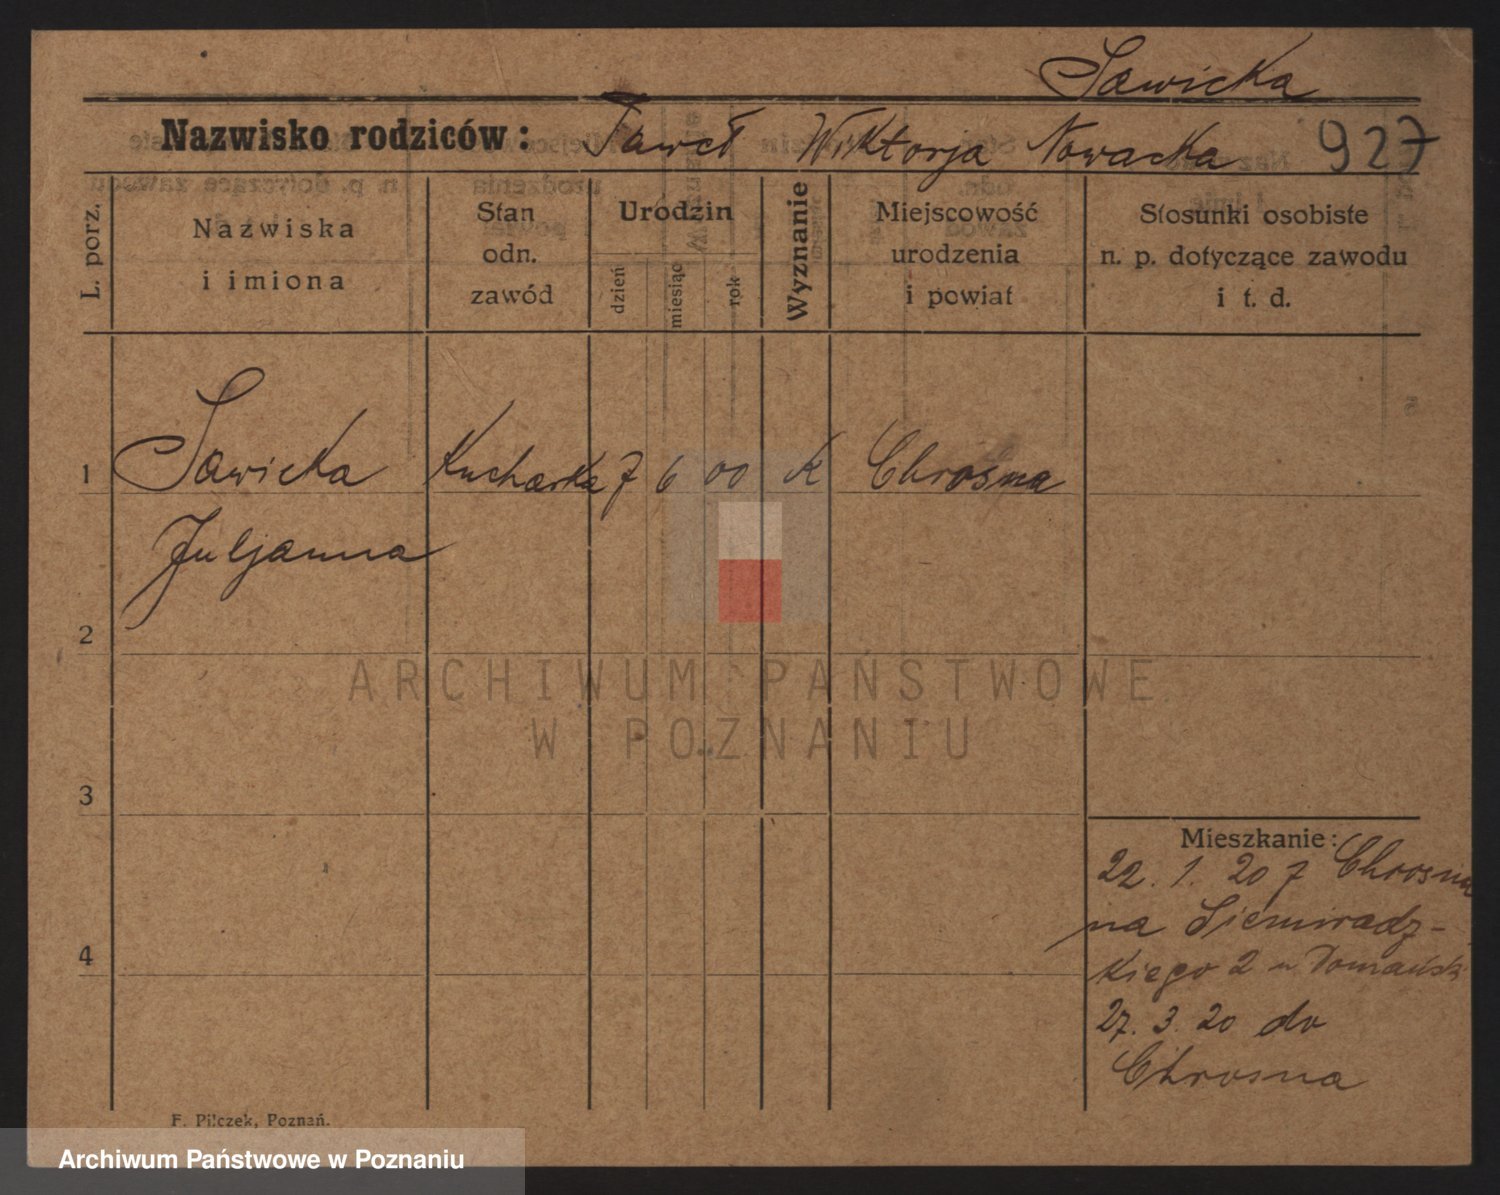 Sawicka
Nazwisko rodziców: Paweł Wiktorja Nowacka 927
L. porz.
Nazwiska
i imiona
Stan
odn.
zawód
Urodzin
dzień
miesiąc
rok
Wyznanie
Miejscowość
urodzenia
i powiat
Stosunki osobiste
n. p. dotyczące zawodu
i t. d.
1 Sawicka Kucharka 7 6 00 K Chrosna
Juljanna
2
3
4
Mieszkanie:
22. 1. 20 z Chrosna
na Siemiradz-
kiego 2 u
27. 3. 20 do
Chrosna
F. Pilczek, Poznań.
ARCHIWUM PAŃSTWOWE
W POZNANIU
Archiwum Państwowe w Poznaniu